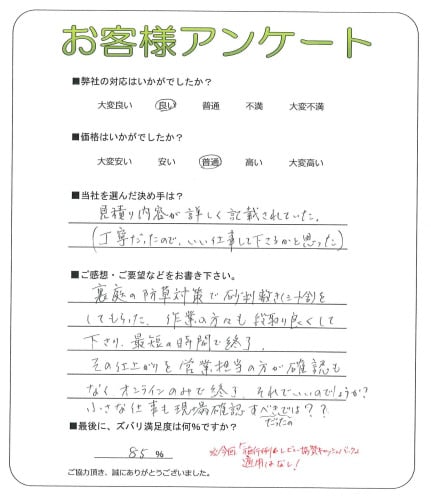 お客様アンケート
■弊社の対応はいかがでしたか？
大変良い 良い 普通 不満 大変不満
■価格はいかがでしたか？
大変安い 安い 普通 高い 大変高い
■当社を選んだ決め手は？
見積り内容が詳しく記載されていた。
(丁寧だったので、いい仕事して下さるかと思った)
■ご感想・ご要望などをお書き下さい。
裏庭の防草対策で砂利敷き
してもらった。作業の方々も段取り良くして
下さり、最短の時間で終了。
その仕上がりを営業担当の方が確認も
なくオンラインのみで終了。それでいいのでしょうか？
小さな仕事も現場確認すべきでは？？
だったの
■最後に、ズバリ満足度は何％ですか？
85 %
※今回「施行事例&レビュー協賛キャッシュバック」
適用はなし！
ご協力頂き、誠にありがとうございました。